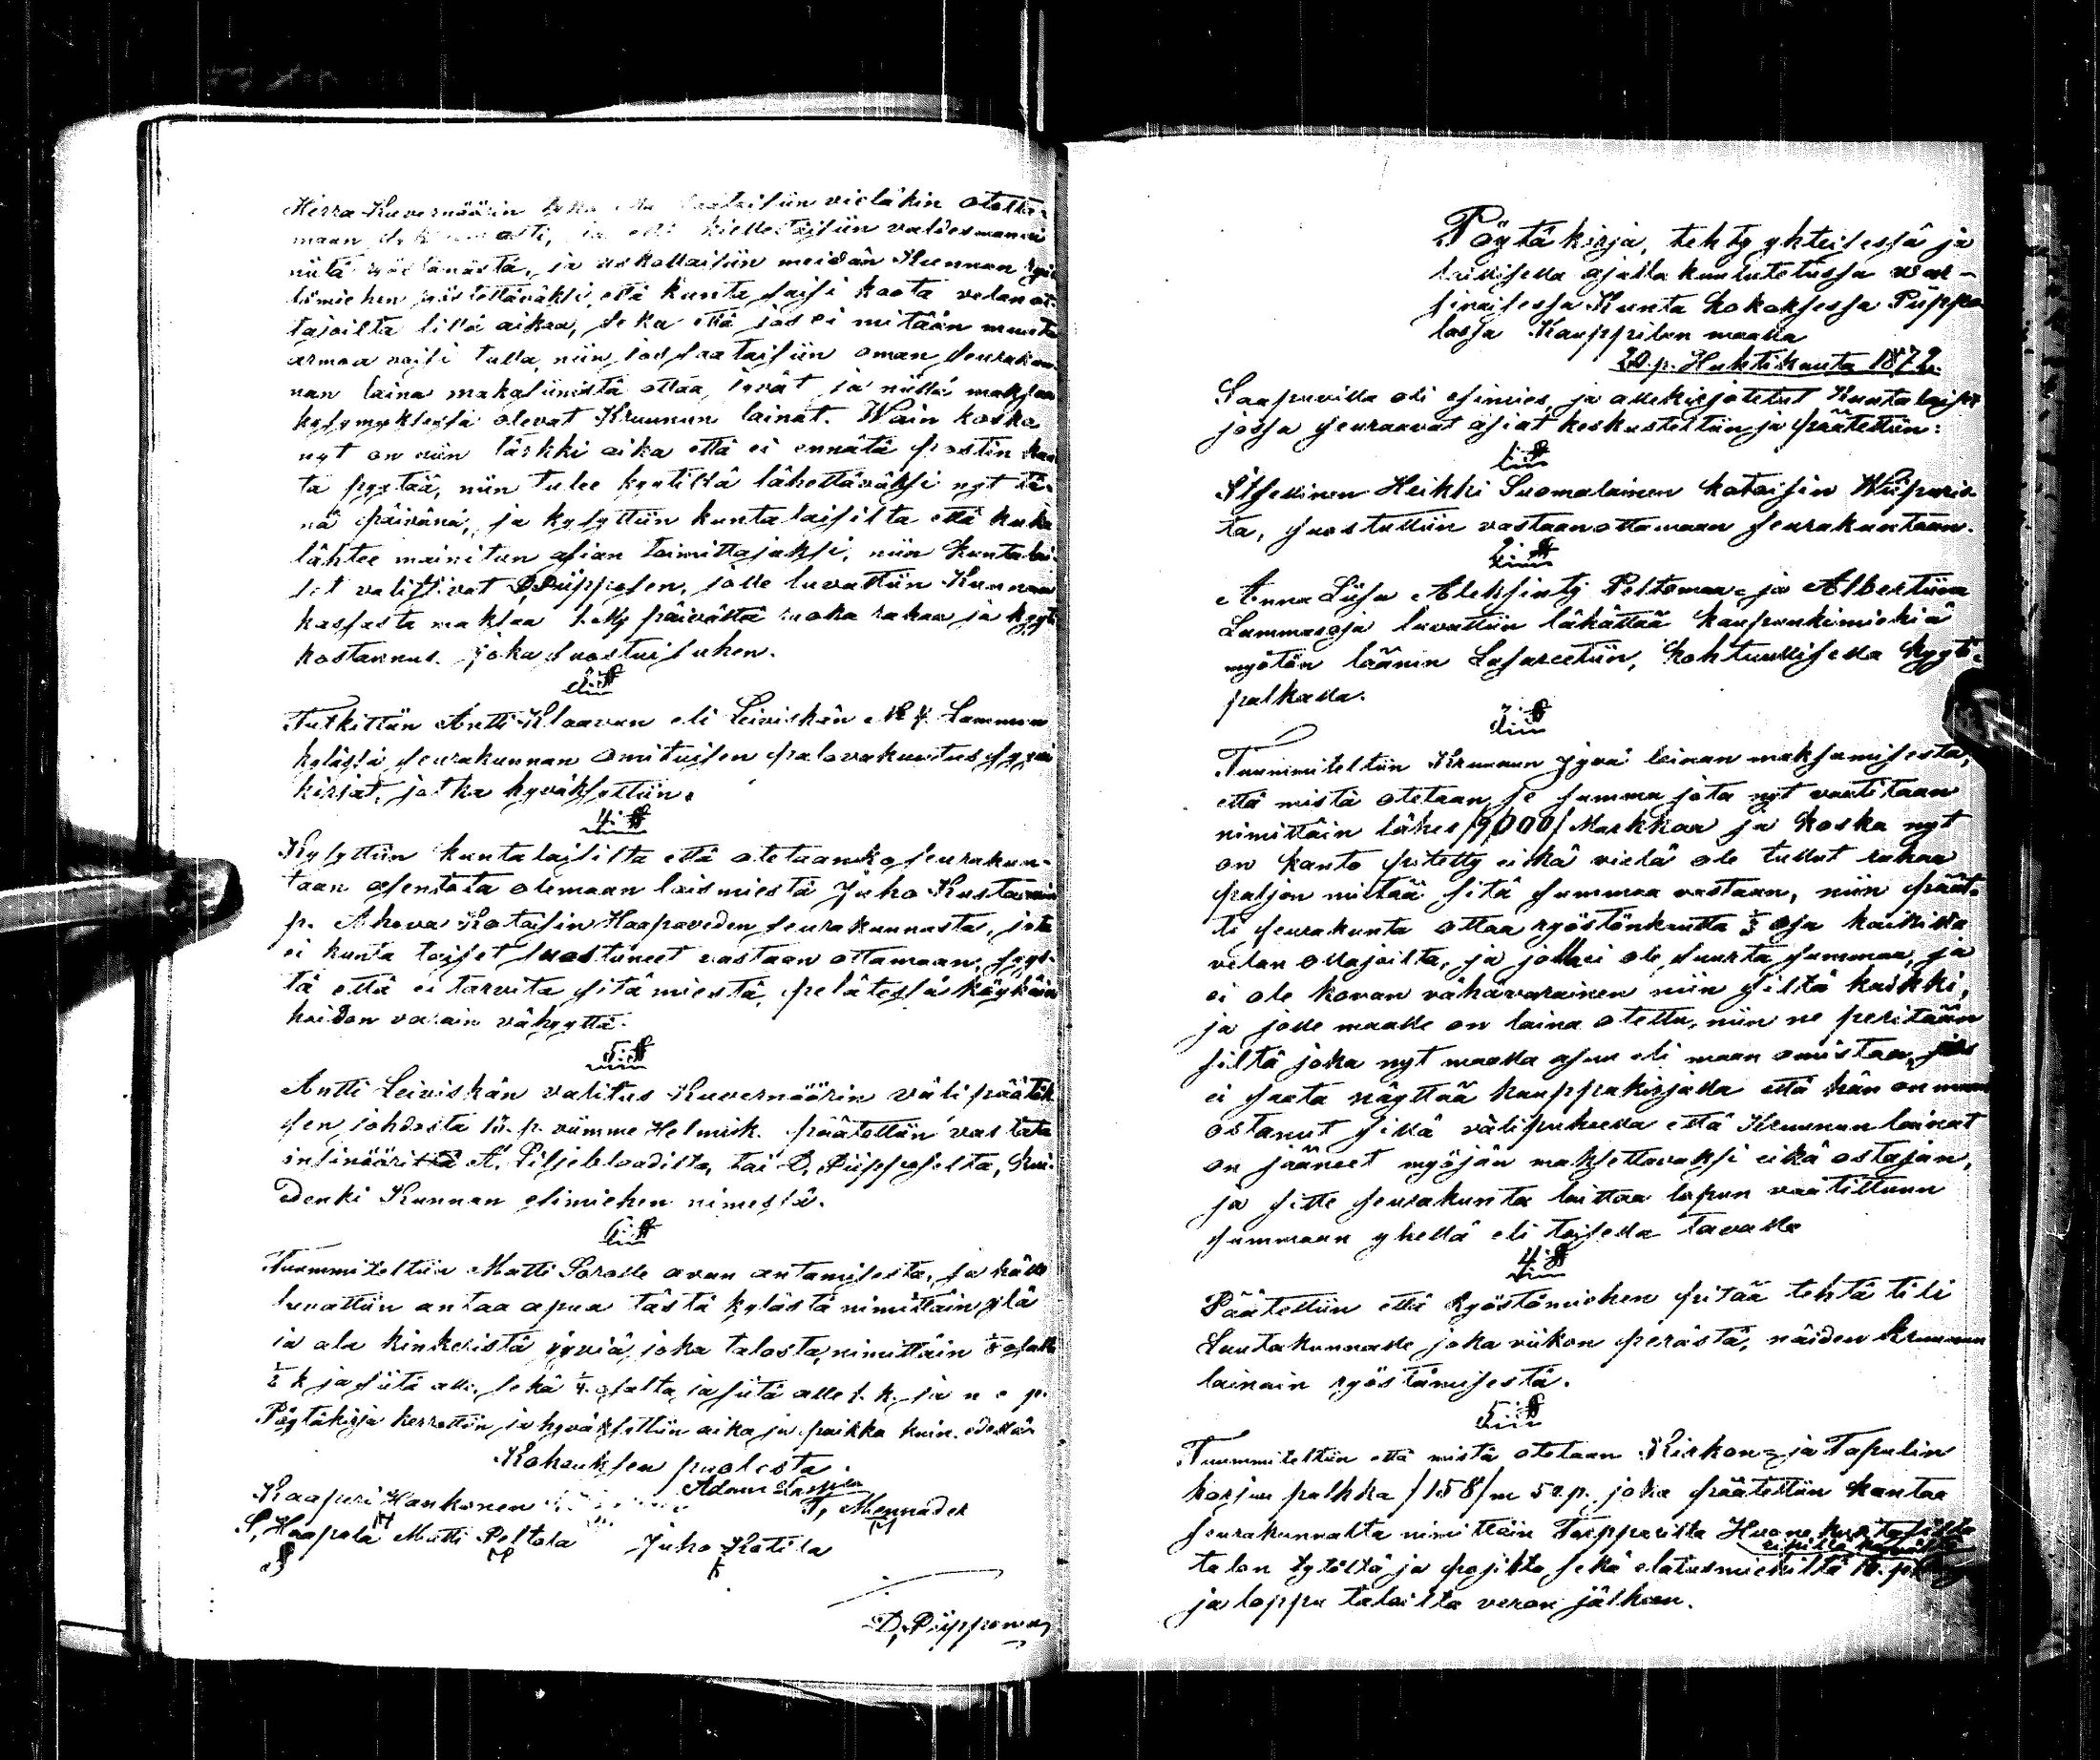 Herra Kuvernöörin vieläkin otetta-
maan valdesmanni
niitä ryöstämästä, ja uskottaisiin meidän Kunnan
esimiehen ryöstettäväksi, että kunta saisi koota velan ot-
tajoilta sillä aikaa, seka että jos ei mitään muuta
armoa voisi tulla, niin jos saataisiin oman seurakun-
nan laina makasiinistä ottaa, jyvät ja niillä maksaa
kysymyksessä olevat Kruunun lainat. Wain koska
nyt on niin lärkki aika että ei ennätä postin kau-
ta pyytää, niin tulee kyytillä lähettäväksi nyt tä-
nä päivänä, ja kysyttiin kuntalaisilta että kuka
lähtee mainitun asian toimittajaksi, niin kuntalai-
set valittivat D, Piipposen, jolle luvattiin Kunnan
kassasta maksaa päivältä ruoka rahaa ja kyyti
kostannus. joka suostui siihen.
3 §
Tutkittiin Antti Klaavun eli Leiviskän № 4. Lamminen
kylässä seurakunnan omituisen palovakuutus syyni
kirjat, jotka hyväksyttiin.
4 §
Kysyttiin kuntalaisilta että otetaanko seurakun-
taan asentota olemaan loismiestä Juho Kustavin
p. Ahova Kotoisin Haapaveden seurakunnasta, jota
ei kunta laiset suostuneet vastaan ottamaan, syys-
tä että ei tarvita sitä miestä, pelätessä köyhäin
hoidon varain vähyyttä.
5 §
Antti Leiviskän valitus Kuvernöörin väli päätök-
sen johdosta 15. p. viimme Helmik. päätettiin vastata
insinööriltä A. Liljebloadilta, tai D, Piipposelta, kui-
denki Kunnan esimiehen nimessä.
6 §
Tuummiteltiin Matti Soralle avun antamisesta, ja hälle
luvattiin antaa apua tästä kylästä nimittäin ylä
ja ala kinkeristä jyviä, joka talosta, nimittäin
½ k ja siitä alle. sekä ¼ osalta, ja siitä alle 1. k. ja n e p.
Pöytäkirja kerrottiin ja hyväksyttiin aika ja paikka kuin edellä
Kokouksen puolesta
Kaaperi Hankonen Adam T, Mennader
S, Haapala Matti Peltola Juho Kotila
D, Piipponen
Pöytäkirja, tehty yhteisessä ja
laillisella ajalla kuulutetussa war-
sinaisessa Kunta kokoksessa Piippo
lassa Kauppilan maalla
20. p. Huhtikuuta 1872.
Saapuvilla oli esimies, ja allekirjotetut Kuntalaiset
jossa seuraavat asiat keskusteltiin ja päätettiin:
1 §
Itsellinen Heikki Suomalainen kotoisin Wiipuris-
ta, suostuttiin vastaanottamaan seurakuntaan.
2 §
Anna Liisa Aleksinty Peltomaa- ja Albertiina
Lammasoja luvattiin läkättää kaupunkimiehiä
myöten läänin Lasareetiin, kohtuullisella kyyti-
palkalla.
3 §
Tuummiteltiin Kruunun jyvä lainan maksamisesta,
että mistä otetaan se summa jota nyt vaatitaan
nimittäin lähes /9,000/ Markkaa ja koska nyt
on kanto pitetty eikä vielä ole tullut rahaa
paljon mittää sitä summaa vastaan, niin päät-
ti seurakunta ottaa ryöstönkautta ⅓ osa kaikilta
velan ottajoilta, ja jolla ei ole suurta summaa, ja
ei ole kovan vähävarainen niin siltä kaikki,
ja jolle maalle on laina otettu, niin ne peritään
siltä joka nyt maalla asuu eli maan omistaa, jos
ei saata näyttää kauppakirjalla että hän on maan
ostanut sillä välipuheella että Kruunun lainat
on jääneet myöjän maksettavaksi eikä ostajan,
ja sitte seurakunta laittaa lopun vaatittuun
summaan yhellä eli toisella tavalla
4 §
Päätettiin että Ryöstömiehen pitää tehtä tili
Lautakunnalle joka viikon perästä, näiden Kruunun
lainain ryöstämisestä.
5 §
Tuummiteltiin että mistä otetaan Kirkon- ja Tapulin
korjuu palkka /158/ m 52 p. joka päätettiin kantaa
seurakunnalta nimittäin Torpparista Huone
talon tytöltä ja pojilta sekä elatusmiehiltä
ja loppu taloilta veron jälkeen.